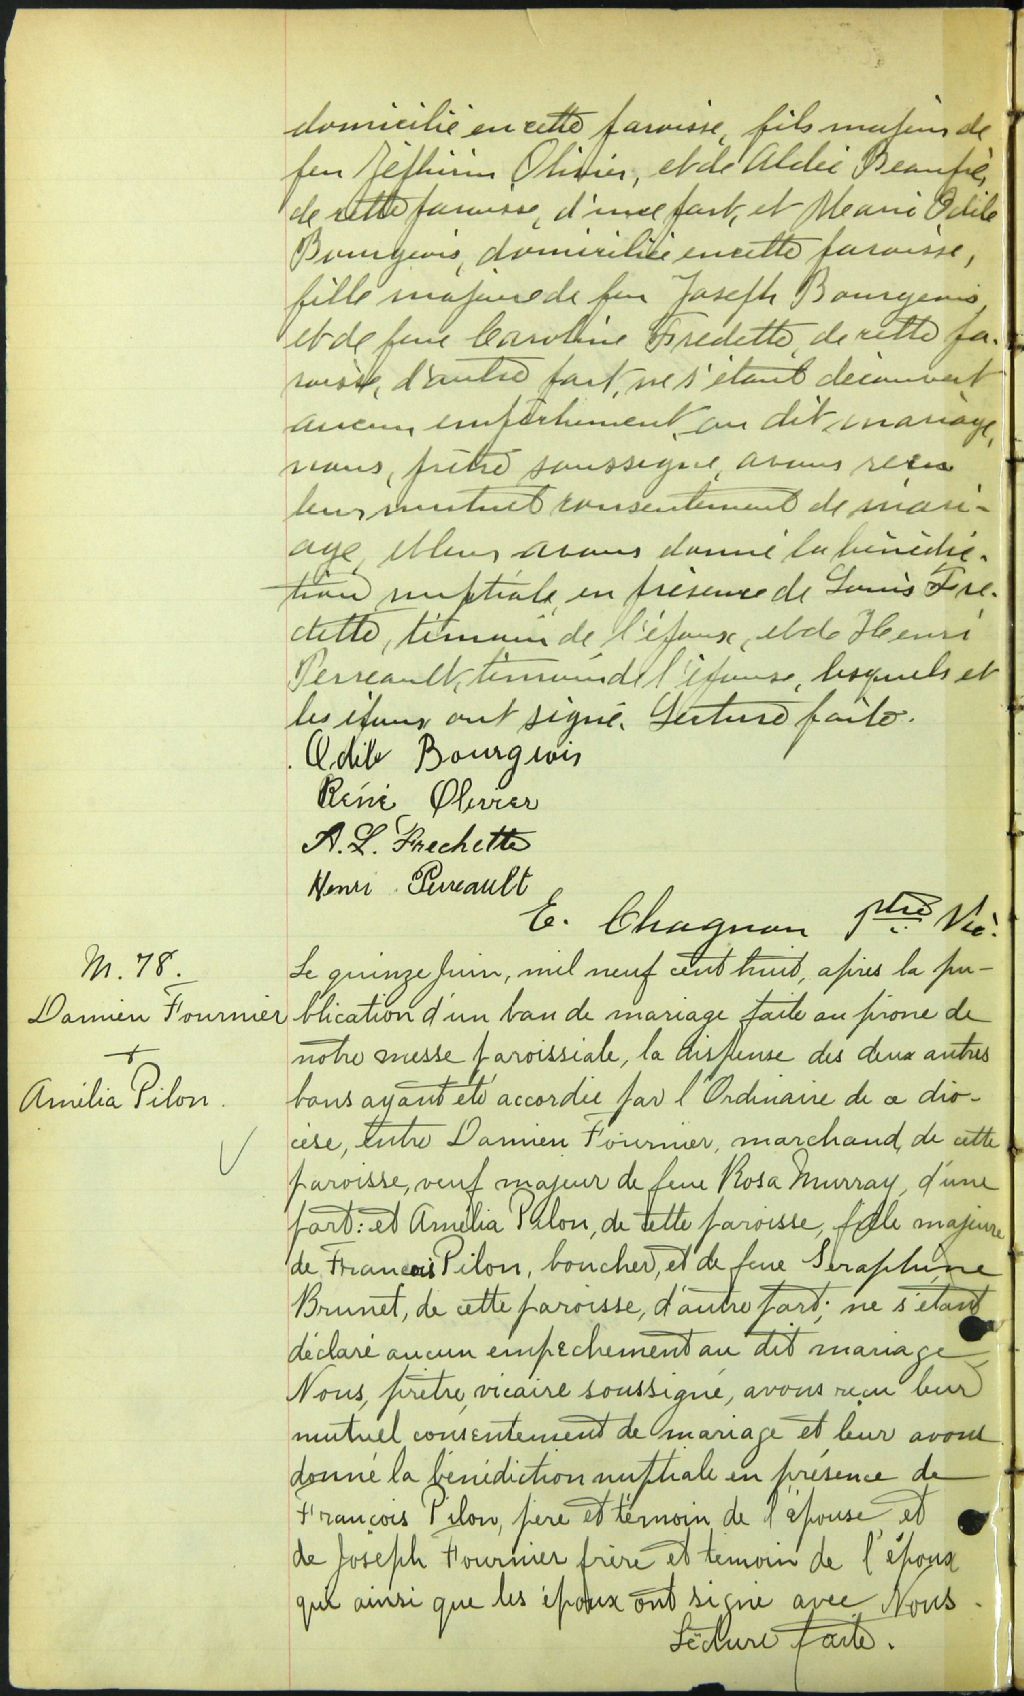 domicilié en cette paroisse, fils majeur de
feu Zéphirin Olivier, et de Aldée Beaupré,
de cette paroisse, d'une part, et Marie Odile
Bourgeois, domiciliée en cette paroisse,
fille majeure de feu Joseph Bourgeois,
et de feue Caroline Fredette, de cette pa-
roisse, d'autre part, ne s'étant découvert
aucun empêchement au dit mariage,
nous, prêtre soussigné, avons reçu
leur mutuel consentement de mari-
age, et leur avons donné la bénédic-
tion nuptiale, en présence de Louis Fre-
dette, témoin de l'époux, et de Henri
Perreault, témoin de l'épouse, lesquels et
les époux ont signé. Lecture faite.
Odile Bourgeois
Réné Olivier
A. L. Frechette
Henri Perreault
E. Chagnon ptre Vic.
M. 78.
Damien Fournier
+
Amélia Pilon.
Le quinze Juin, mil neuf cent huit, après la pu-
blication d'un ban de mariage faite au prone de
notre messe paroissiale, la dispense des deux autres
bans ayant été accordée par l'Ordinaire de ce dio-
cèse, entre Damien Fournier, marchand, de cette
paroisse, veuf majeur de feue Rosa Murray, d'une
part: et Amélia Pilon, de cette paroisse, fille majeure
de François Pilon, boucher, et de feue Seraphine
Brunet, de cette paroisse, d'autre part; ne s'étant
déclaré aucun empêchement au dit mariage
Nous, prêtre, vicaire soussigné, avons reçu leur
mutuel consentement de mariage et leur avons
donné la bénédiction nuptiale en présence de
François Pilon, père et témoin de l'épouse et
de Joseph Fournier frère et temoin de l'époux
qui ainsi que les époux ont signé avec Nous.
Lecture faite.